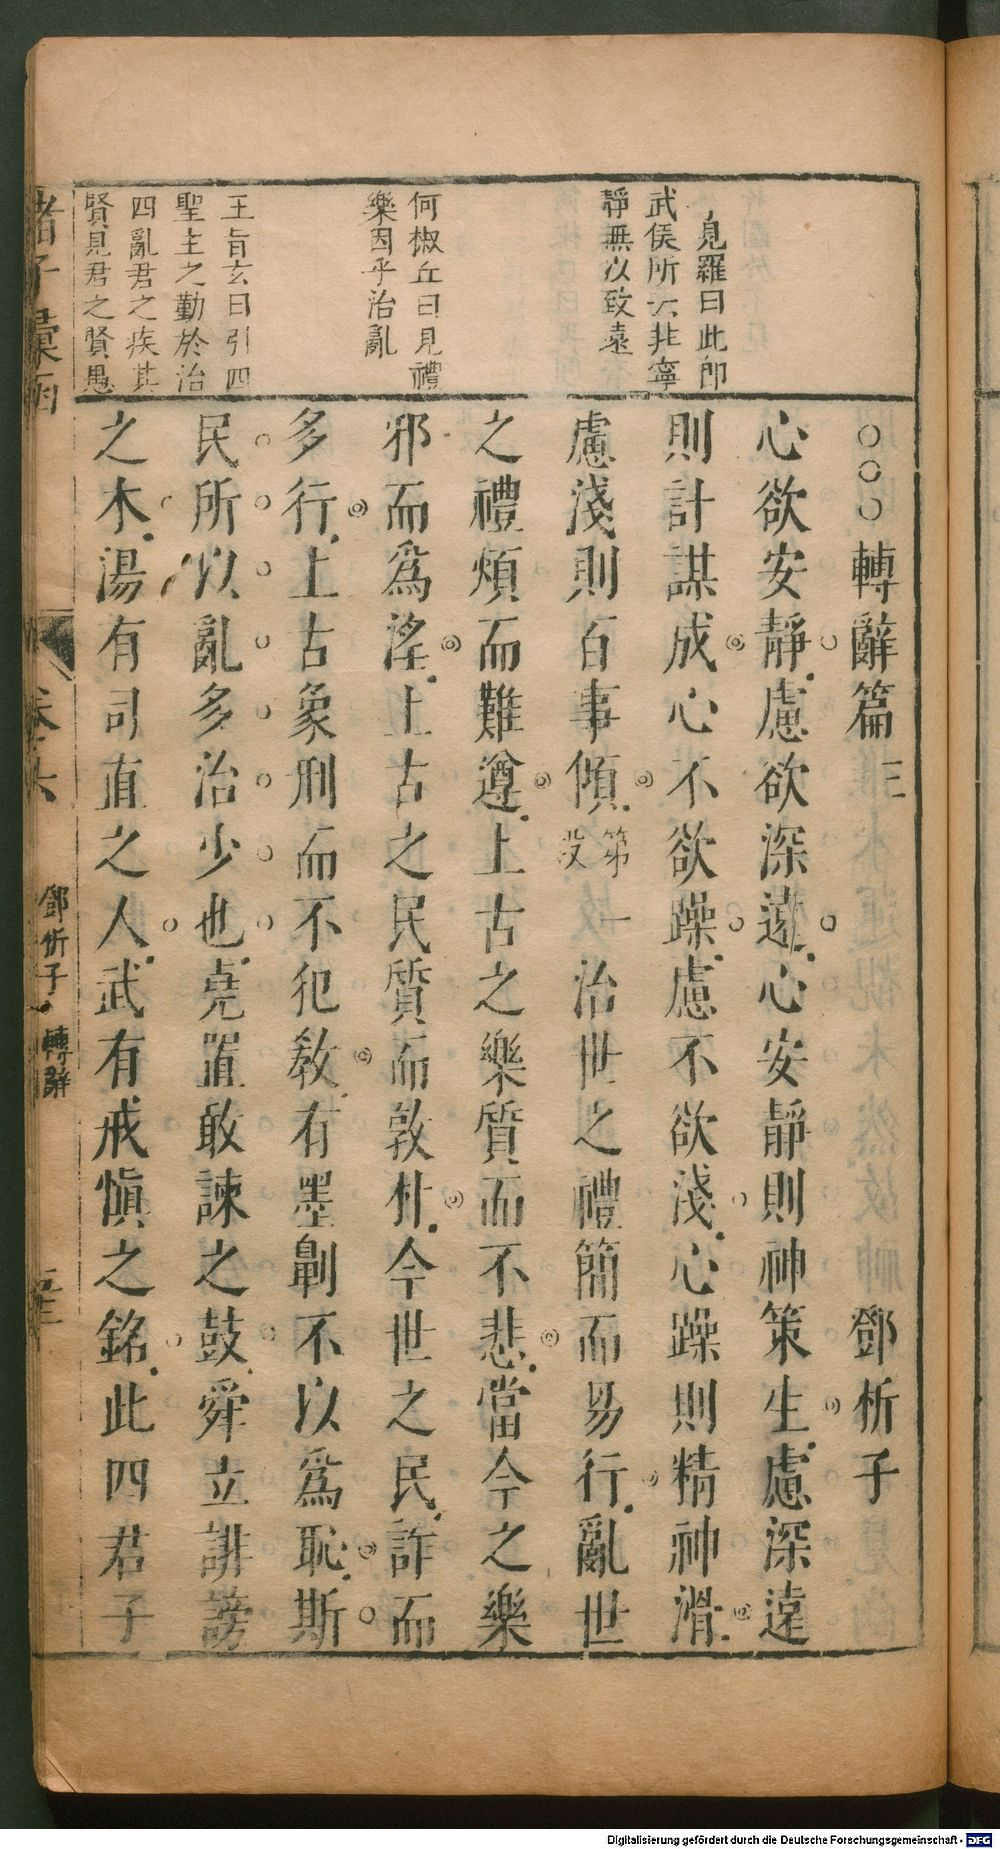 ○○○轉辭篇三 鄧析子
心欲安靜慮欲深遠心安靜則神策生慮深遠
則計謀成心不欲躁慮不欲淺心躁則精神滑
慮淺則百事傾 第一段 治世之禮簡而易行亂世
之禮煩而難遵上古之樂質而不悲當今之樂
邪而爲淫上古之民質而敦朴今世之民詐而
多行上古象刑而不犯教有墨劓不以爲恥斯
民所以亂多治少也堯置敢諫之鼓舜立誹謗
之木湯有司直之人武有戒慎之銘此四君子
見羅曰此卽
武侯所云非寧
靜無以致遠
何椒丘曰見禮
樂因乎治亂
王旨玄曰引四
聖主之勤於治
四亂君之疾其
賢見君之賢愚
諸子彙函
鄧析子 轉辭
Digitalisierung gefördert durch die Deutsche Forschungsgemeinschaft - DFG